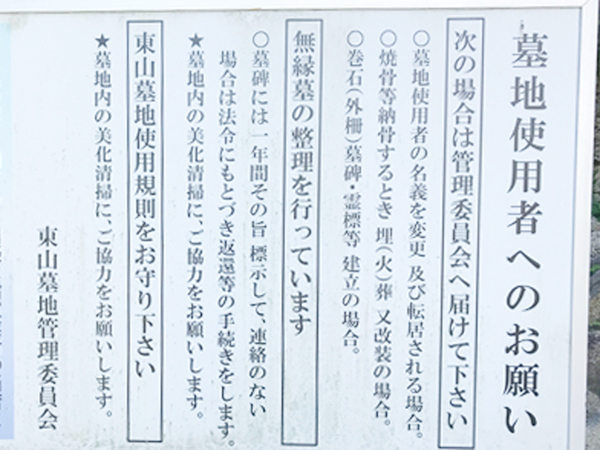 墓地使用者へのお願い
次の場合は管理委員会へ届けて下さい
○墓地使用者の名義を変更 及び転居される場合。
○焼骨等納骨するとき 埋(火)葬 又改装の場合。
○巻石(外柵)墓碑・霊標等 建立の場合。
無縁墓の整理を行っています
○墓碑には一年間その旨 標示して、連絡のない
場合は法令にもとづき返還等の手続きをします。
★墓地内の美化清掃に、ご協力をお願いします。
東山墓地使用規則をお守り下さい
★墓地内の美化清掃に、ご協力をお願いします。
東山墓地管理委員会